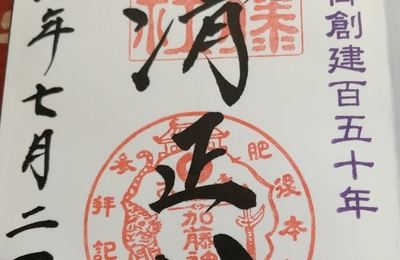 創建百五十年
清正公
年七月二
加藤神
肥後本
参拝記